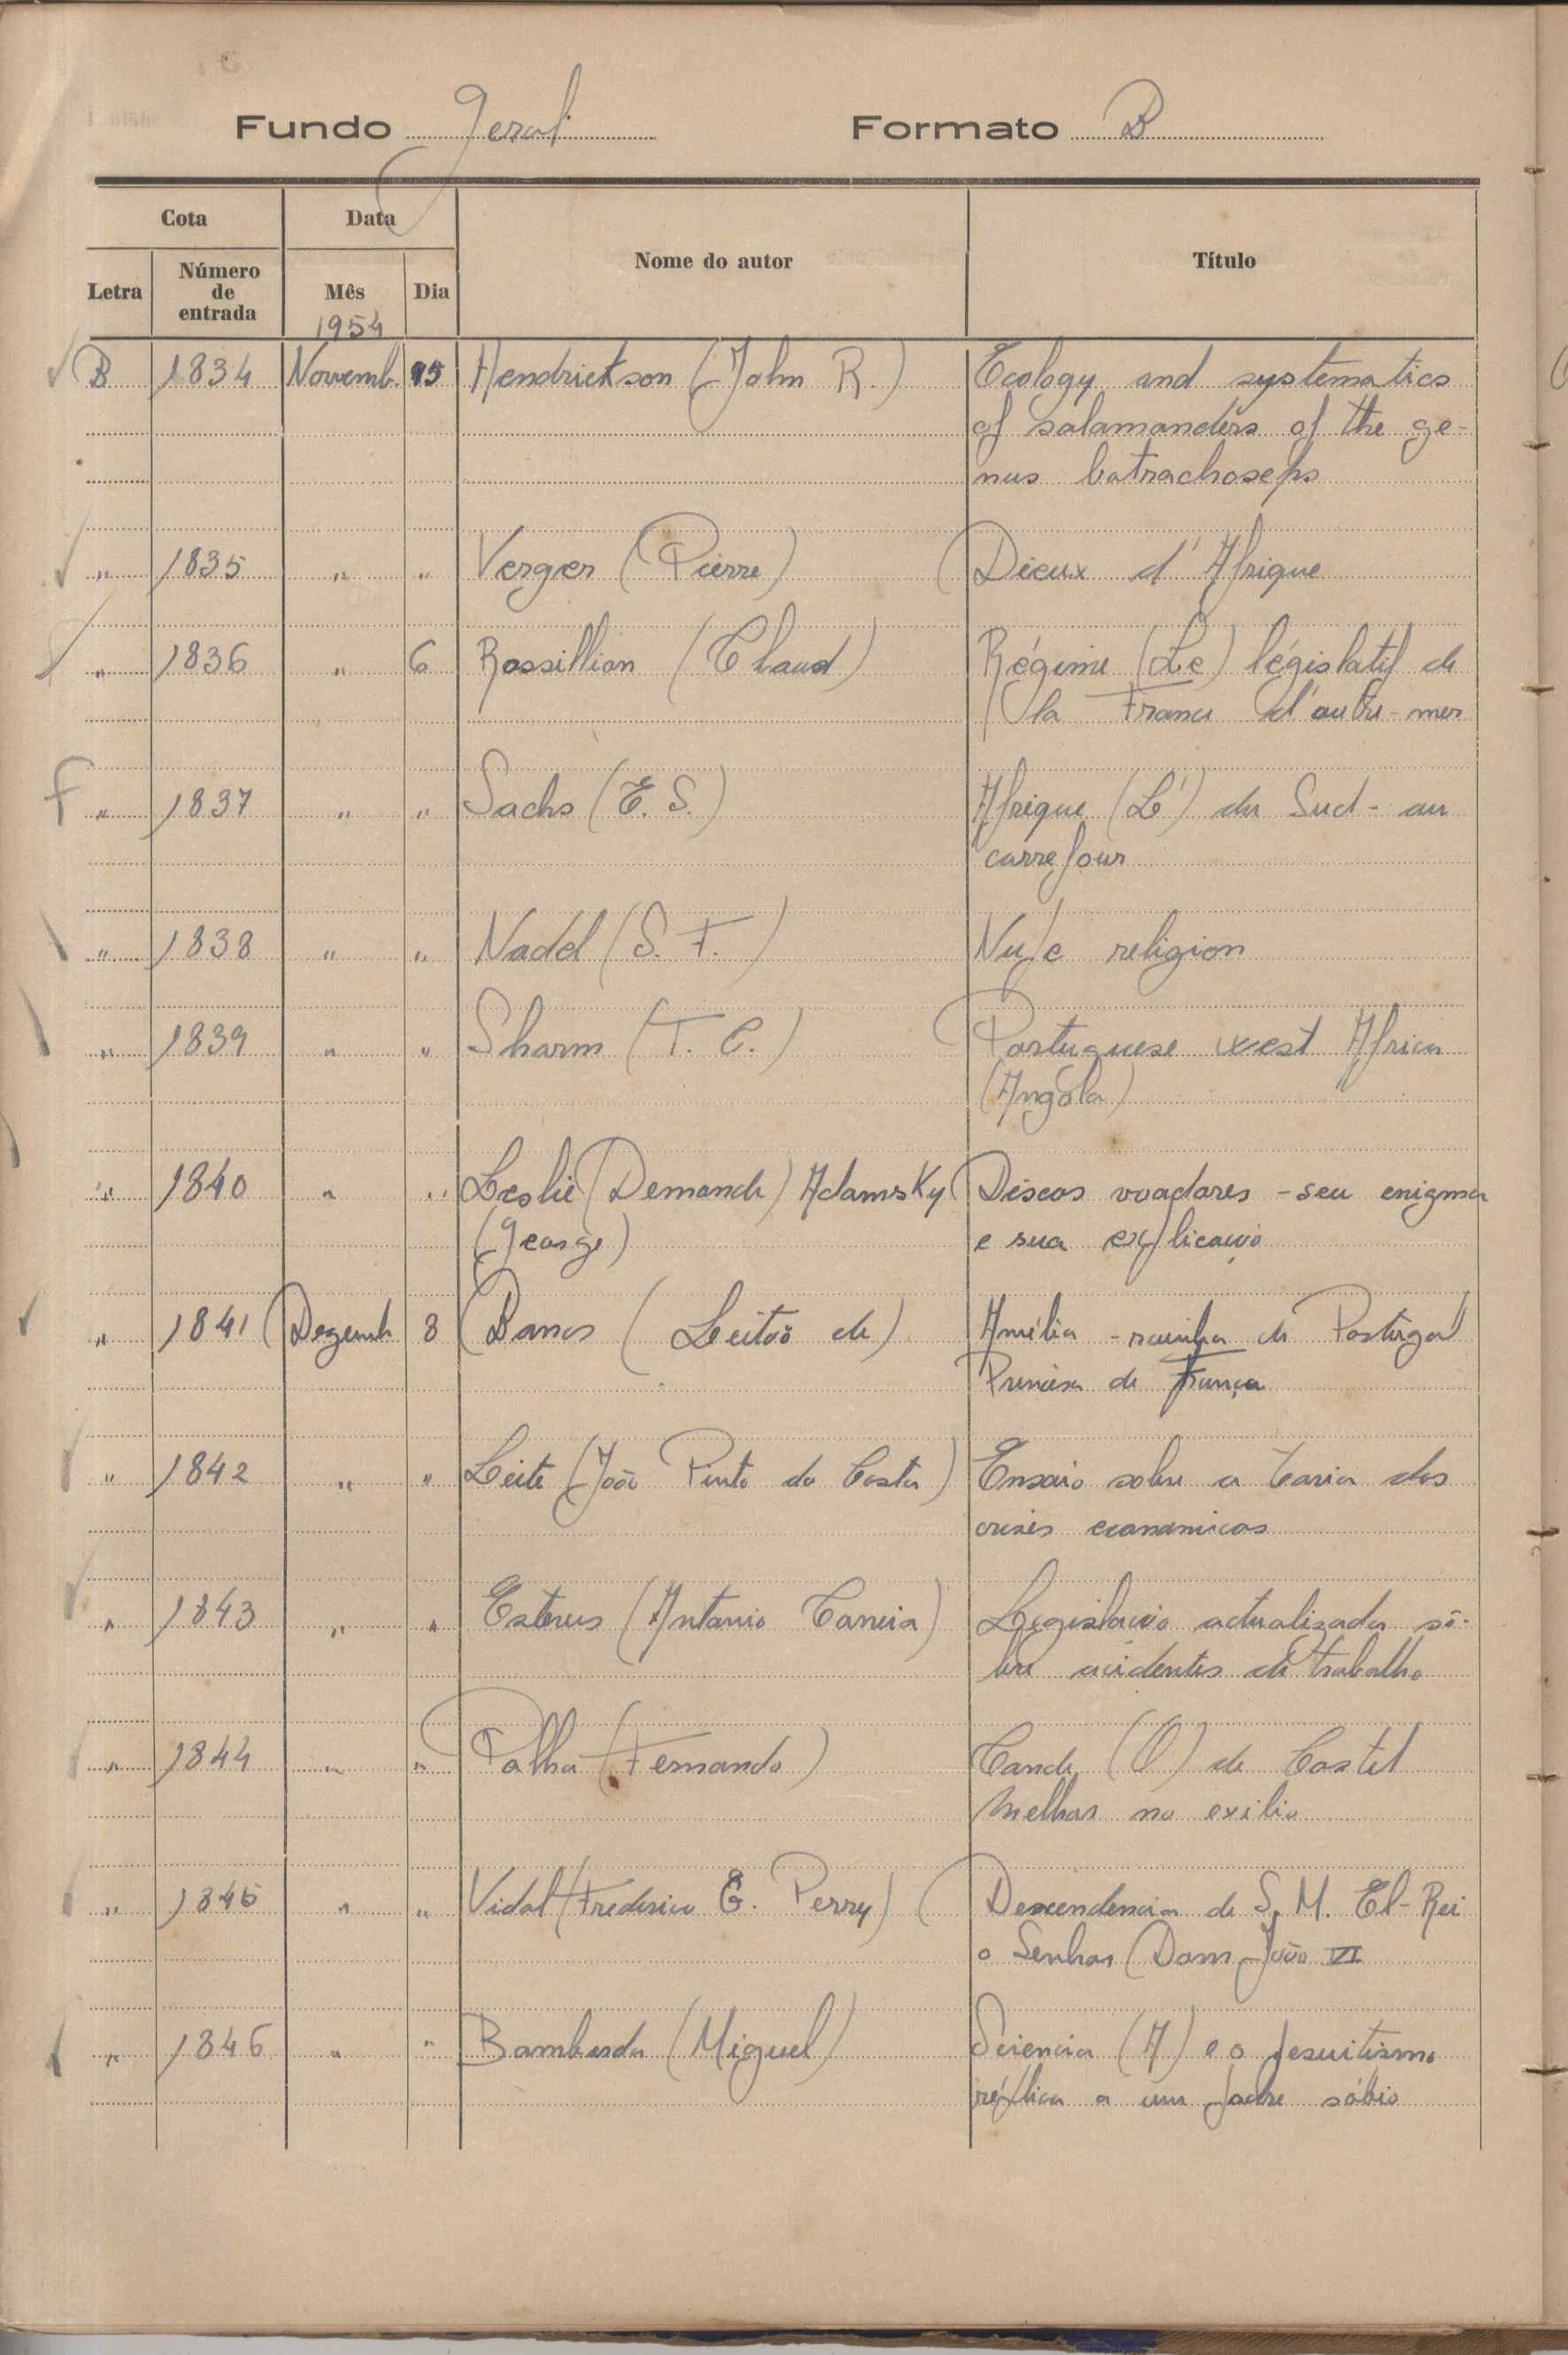 Fundo Geral Formato B
Cota Data Nome do autor Título
Letra Número de entrada Mês Dia
1954
B 1834 Novemb. 15 Hendrickson (John R.) Ecology and systematics
of salamanders of the ge-
nus batrachoseps
" 1835 " " Verger (Pierre) Dieux d'Afrique
" 1836 " 6 Rossillion (Claud) Régime (Le) législatif de
la France d'outre-mer
" 1837 " " Sachs (E. S.) Afrique (L') du Sud - au
carrefour
" 1838 " " Nadel (S. F.) Nupe religion
" 1839 " " Sharm (T. C.) Portuguese west Africa
(Angola)
" 1840 " " Leslie (Demond) Adamsky Discos voadores - seu enigma
(George) e sua explicação
" 1841 Dezemb 8 Barros (Leitão de) Amélia - rainha de Portugal
Princesa de França
" 1842 " " Leite (João Pinto da Costa) Ensaio sobre a teoria das
crises económicas
" 1843 " " Esteves (Antonio Correia) Legislação actualizada sô-
bre acidentes de trabalho
" 1844 " " Palha (Fernando) Conde (O) de Castel
Melhor no exilio
" 1845 " " Vidal (Frederico G. Perry) Descendencia de S. M. El-Rei
o Senhor Dom João VI
" 1846 " " Bombarda (Miguel) Sciencia (A) e o jesuitismo
réplica a um padre sábio